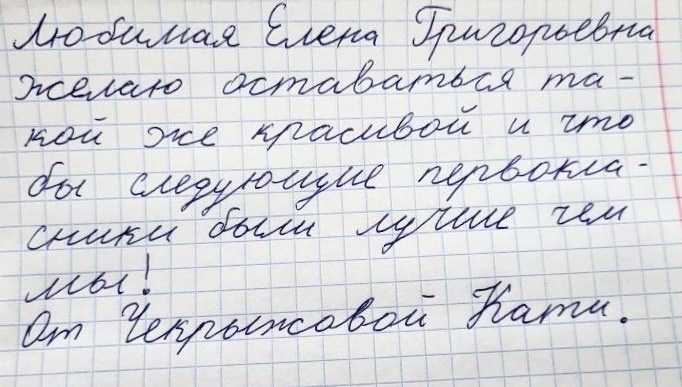 Любимая Елена Григорьевна
желаю оставаться та-
кой же красивой и что
бы следующие первокла-
сники были лучше чем
мы!
От Чекрыжовой Кати.